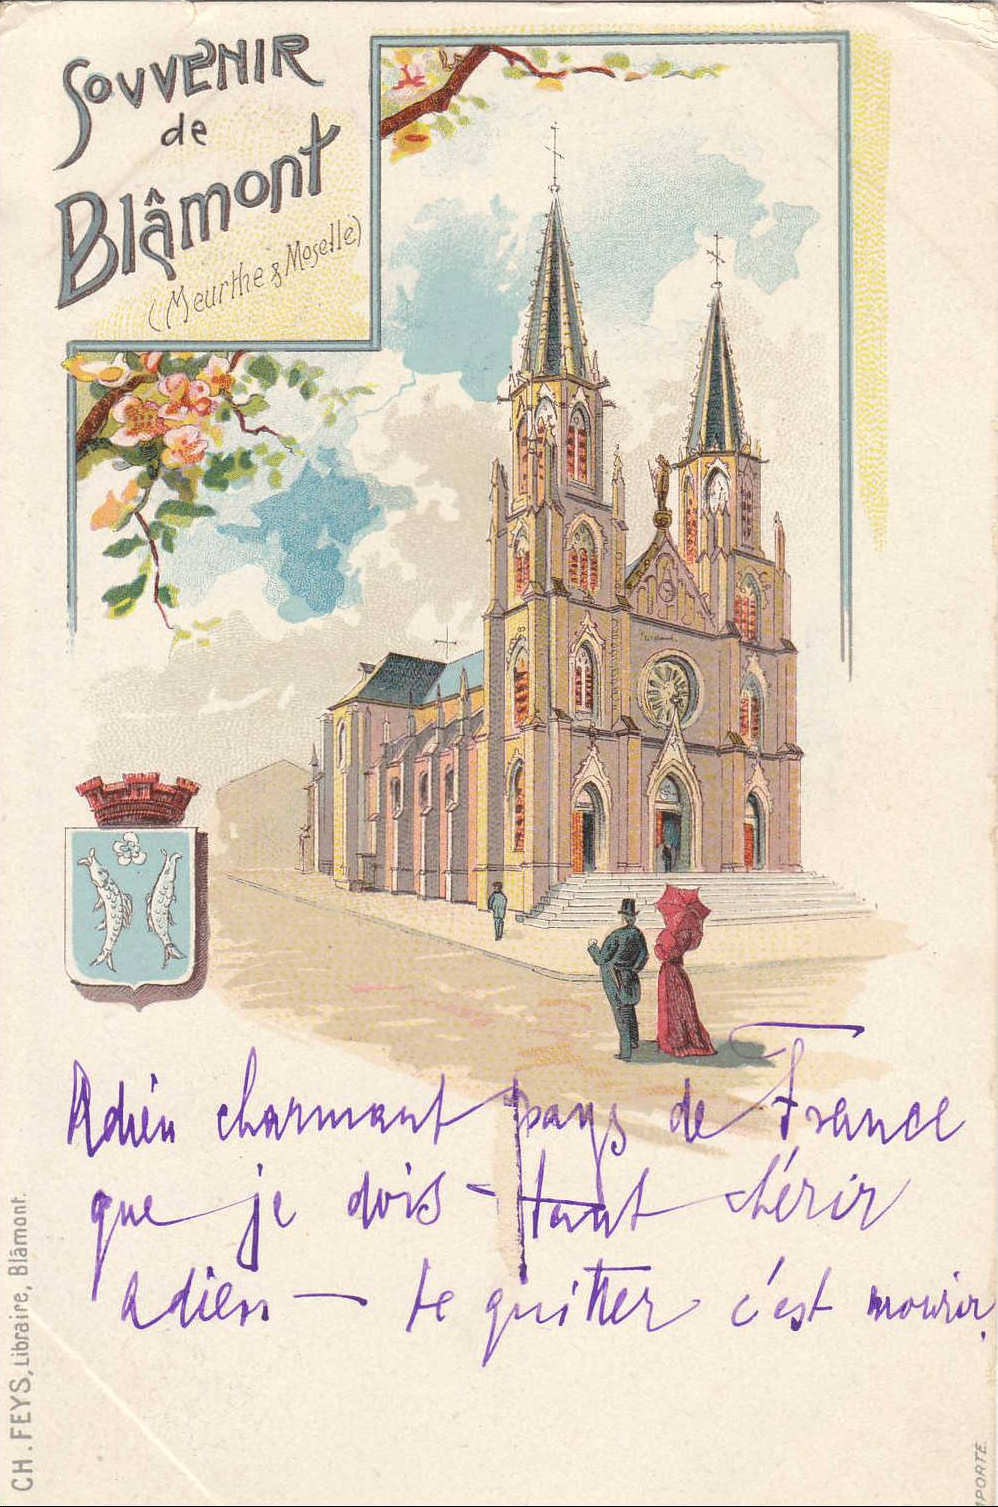 SOUVENIR
de
Blâmont
(Meurthe & Moselle)
Adieu charmant pays de France
que je dois - tant chérir
Adieu — te quitter c'est mourir.
CH. FEYS, Libraire, Blâmont.